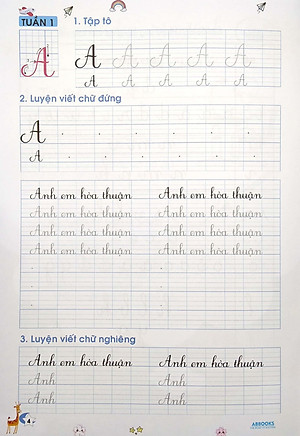 TUẦN 1
1. Tập tô
A
A A A A A
A A A A A
2. Luyện viết chữ đứng
A
A
Anh em hòa thuận Anh em hòa thuận
Anh em hòa thuận Anh em hòa thuận
Anh em hòa thuận Anh em hòa thuận
Anh em hòa thuận Anh em hòa thuận
3. Luyện viết chữ nghiêng
Anh em hòa thuận Anh em hòa thuận
Anh Anh
Anh Anh
4
ABBOOKS